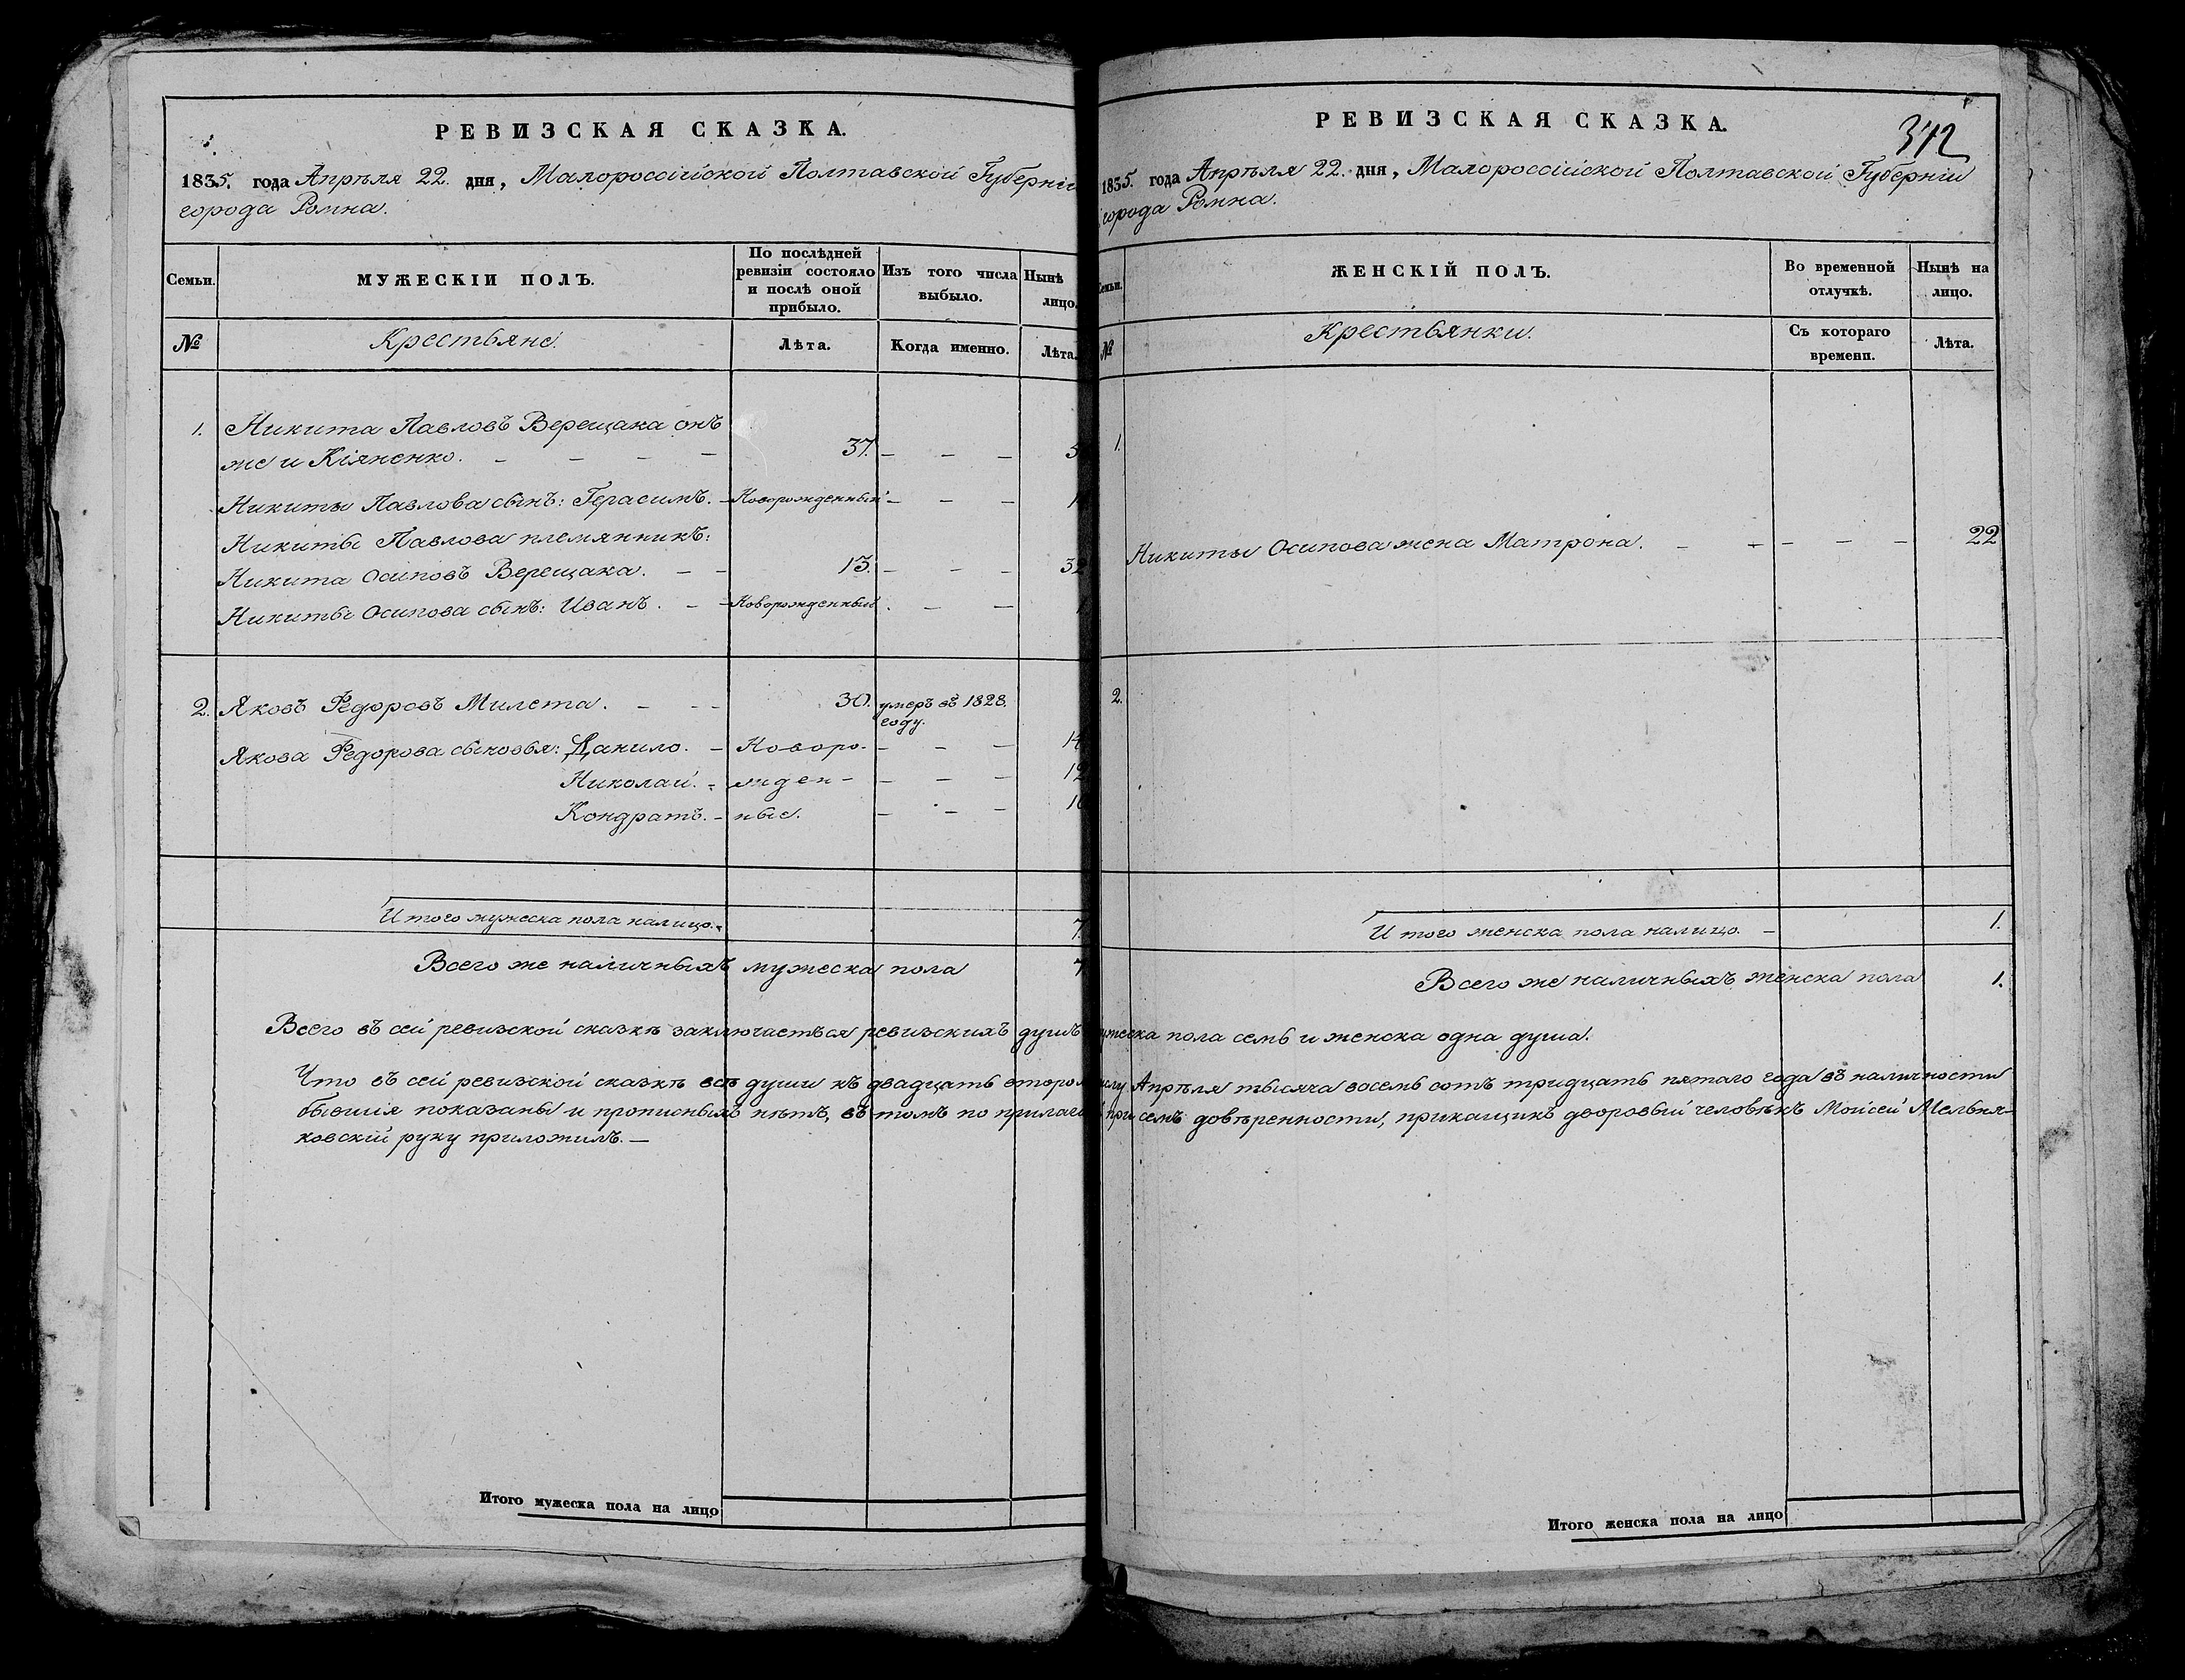 РЕВИЗСКАЯ СКАЗКА.
1835. года Апрѣля 22. дня, Малороссійской Полтавской Губерніи
города Ромна.
Семьи.
МУЖЕСКІИ ПОЛЪ.
По послѣдней
ревизіи состояло
и послѣ оной
прибыло.
Изъ того числа
выбыло.
Нынѣ
лицо.
№
Крестьяне.
Лѣта.
Когда именно.
Лѣта.
1. Никита Павловъ Верещака онъ
же и Кіяненко. — — — — 37. — — —
Никиты Павлова сынъ: Герасимъ. — Новорожденный — — —
Никиты Павлова племянникъ:
Никита Осиповъ Верещака. — — 13. — — — 32
Никиты Осипова сынъ: Иванъ. — — Новорожденный. — —
2. Яковъ Федоровъ Милета. — — — 30. умеръ въ 1828.
году.
Якова Федорова сыновья: Данило. — Новоро- — — — 14
Николай. — жден- — — — 12
Кондратъ. — ные. — — —
Итого мужеска пола налицо. — 7.
Всего же наличныхъ мужеска пола 7
РЕВИЗСКАЯ СКАЗКА.
342
1835. года Апрѣля 22. дня, Малороссійской Полтавской Губерніи
города Ромна.
Семьи.
ЖЕНСКІЙ ПОЛЪ.
Во временной
отлучкѣ.
Нынѣ на
лицо.
№
Крестьянки.
Съ котораго
времени.
Лѣта.
1.
Никиты Осипова жена Матрона. — — — — — 22
2.
Итого женска пола налицо. — 1.
Всего же наличныхъ женска пола 1.
Всего въ сей ревизской сказкѣ заключается ревизскихъ душъ мужеска пола семь и женска одна душа.
Что въ сей ревизской сказкѣ всѣ души къ двадцать второму числу Апрѣля тысяча восемь сотъ тридцать пятаго года въ наличности
бывшія показаны и прописныхъ нѣтъ, въ томъ по прилагаемой при семъ довѣренности, прикащикъ дворовый человѣкъ Моисей Мельни-
ковскій руку приложилъ. —
Итого мужеска пола на лицо
Итого женска пола на лицо